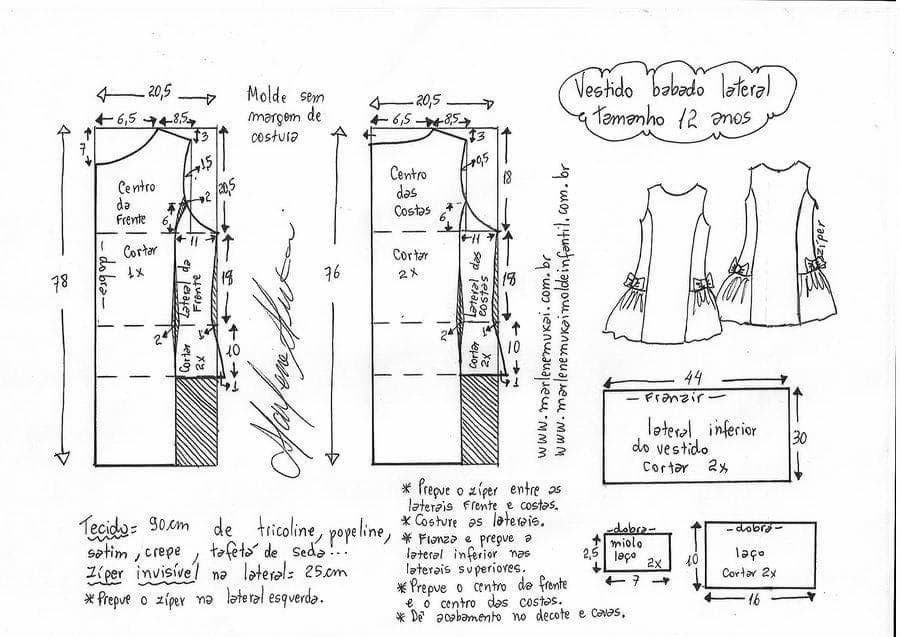 Vestido babado lateral
tamanho 12 anos
Molde sem
margem de
costura
20,5
6,5
8,5
7
3
1,5
2
20,5
6
11
Centro
da
Frente
Cortar
1x
dobra
lateral da
Frente
18
78
2
5
10
Cortar
2x
1
20,5
6,5
8,5
3
0,5
18
6
11
Centro
das
Costas
Cortar
2x
laterais das
costas
18
76
2
5
10
Cortar
2x
1
www.marlenemukai.com.br
www.marlenemukaimoldeinfantil.com.br
zíper
44
Franzir
lateral inferior
do vestido
Cortar 2x
30
dobra
miolo
laço
2x
2,5
7
dobra
laço
Cortar 2x
10
16
Tecido= 90cm de tricoline, popeline,
setim, crepe, tafetá de seda...
Zíper invisível na lateral= 25cm
*Pregue o zíper na lateral esquerda.
* Pregue o zíper entre as
laterais frente e costas.
* Costure as laterais.
* Franza e pregue a
lateral inferior nas
laterais superiores.
* Pregue o centro da frente
e o centro das costas.
* Dê acabamento no decote e cavas.